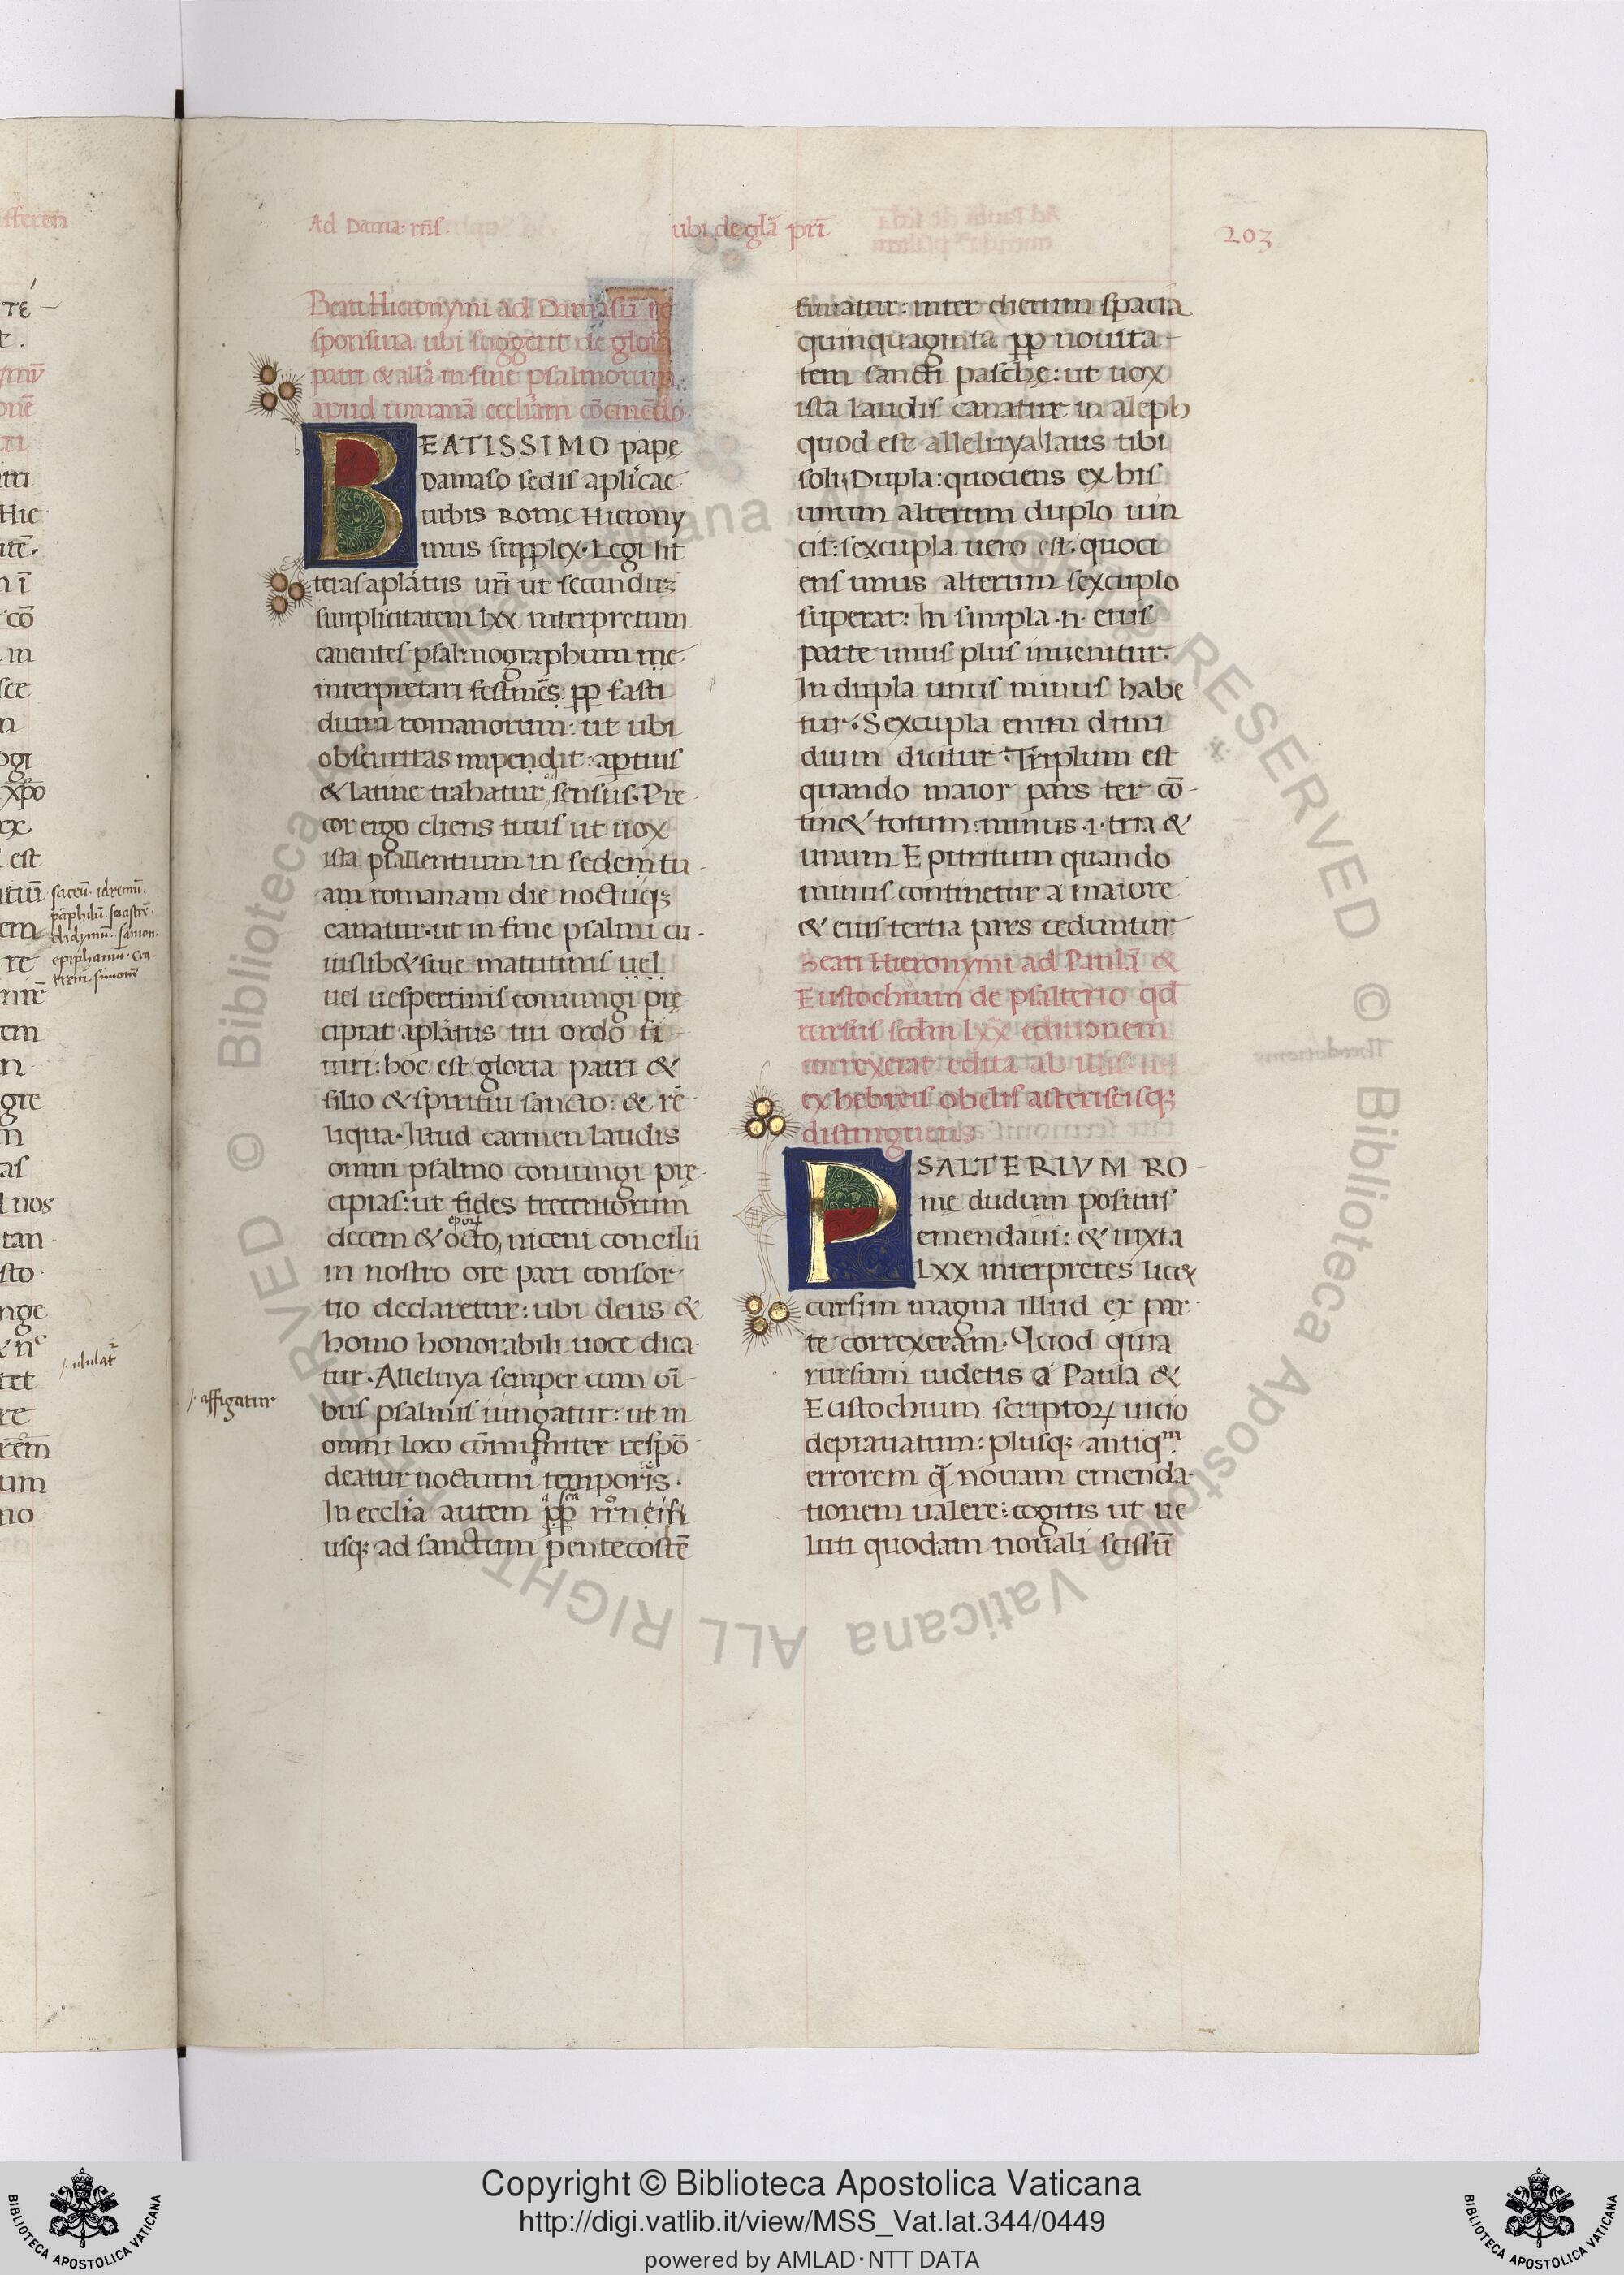 Ad Dama. rñs.
ubi de gľa pr̃i
203
Beati Hieronymi ad Damasũ re
sponsiua ubi suggerit de gloria
patri & allã in fine psalmorum
apud romanã eccliãm cõcinẽdo
BEATISSIMO papę
Damaso sedis aplicae
urbis Rome Hierony
mus supplex. Legi lit
teras aplãtus uri ut secunduz
simplicitatem lxx interpretum
canentes psalmographum me
interpretari festinẽs pp fasti
dium romanorum: ut ubi
obscuritas inpendit: aptius
& latine trahatur sensus. Pre-
cor ergo cliens tuus ut uox
ista psallentium in sedem tu-
am romanam die noctuq;
canatur. ut in fine psalmi cu-
iuslib& siue matutinis uel
uel uespertinis coniungi pre
cipiat aplãtus tui ordo fi-
uiri: hoc est gloria patri &
filio & spiritui sancto: & re
liqua. Istud carmen laudis
omni psalmo coniungi prę-
cipias: ut fides trecentorum
epõꝝ
decem & octo, niceni concilii
in nostro ore pari consor
tio declaretur: ubi deus &
homo honorabili uoce dica
tur. Alleluya semper cum oĩ-
/. affigatur
bus psalmis iungatur: ut in
omni loco cõmuniter respõ
deatur nocturni temporis.
In ecclia autem
usq; ad sanctum pentecostẽ
finiatur: inter dierum spacia
quinquaginta pp nouita-
tem sancti paschę: ut uox
ista laudis canatur in aleph
quod est alleluya laus tibi
soli, Dupla: quociens ex his
unum alterum duplo uin
cit: sexcupla uero est. quoci
ens unus alterum sexcuplo
superat: In simpla .n. eius
parte unus plus inuenitur.
In dupla unus minus habe
tur. Sexcupla enim dimi
dium dicitur. Triplum est
quando maior pars ter cõ-
tin& totum: minus .i. tria &
unum Epitritum quando
minus continetur a maiore
& eius tertia pars ceduntur
Beati Hieronymi ad Paulã &
Eustochium de psalterio qd
rursus scdm lxx editionem
correxerat edita ab
ex hebreis obelis asteriscisq;
distinguens
PSALTERIVM RO-
me dudum positus
emendaui: & iuxta
LXX interpretes lic&
cursim magna illud ex par
te correxeram. Quod quia
rursum uidetis a Paula &
Eustochium scriptoꝝ uicio
deprauatum: plusq; antiqᵐ
errorem q̃ nouam emenda-
tionem ualere: cogitis ut ue
luti quodam nouali scissũ
saceũ. idremũ.
pãphilũ. sagstrẽ.
didymũ. samon.
epiphaniũ.
simonẽ
/. ululat
© Biblioteca Apostolica Vaticana ALL RIGHTS RESERVED © Biblioteca Apostolica Vaticana ALL RIGHTS RESERVED
Copyright © Biblioteca Apostolica Vaticana
http://digi.vatlib.it/view/MSS_Vat.lat.344/0449
powered by AMLAD·NTT DATA
BIBLIOTECA APOSTOLICA VATICANA
BIBLIOTECA APOSTOLICA VATICANA